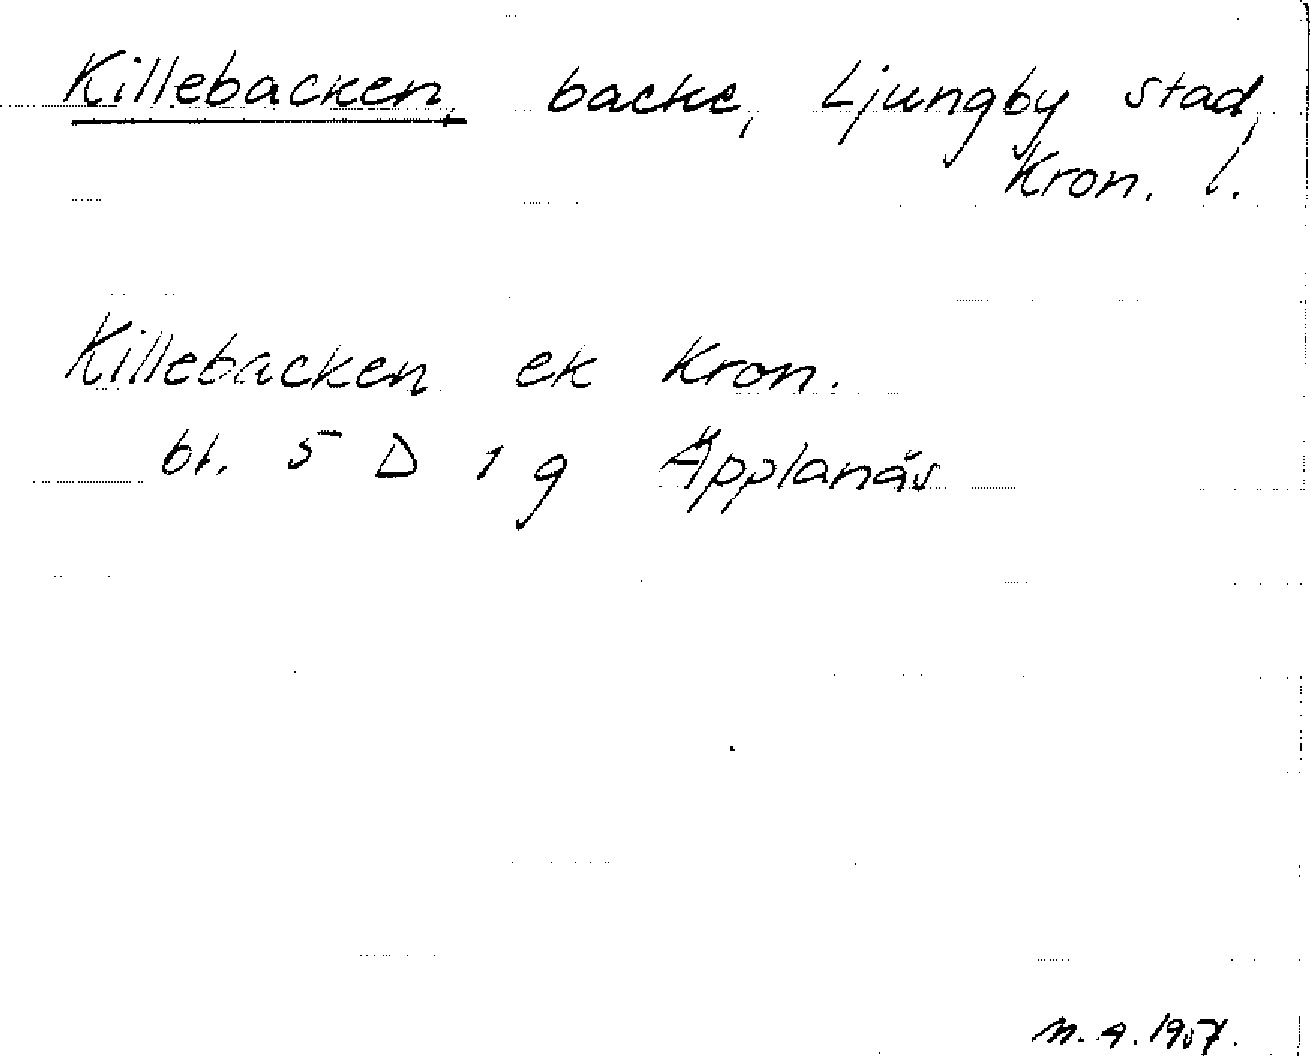 Killebacken, backe, Ljungby stad,
Kron. l.
Killebacken ek Kron.
bl. 5 D 1 g Äpplanäs
M.A. 1957.